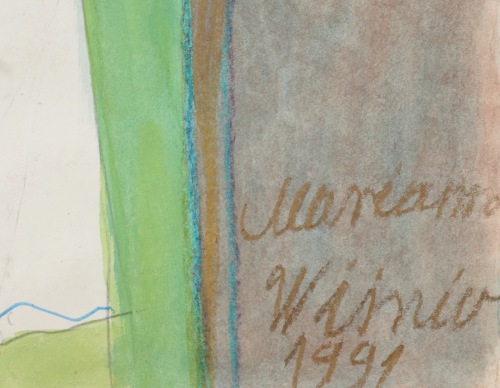 Mariann
Wiśnio
1991